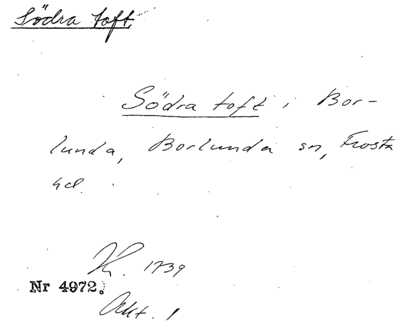 Södra toft
Södra toft i Bor-
lunda, Borlunda sn, Frosta
hd.
K. 1739
Nr 4972.
Akt. 1